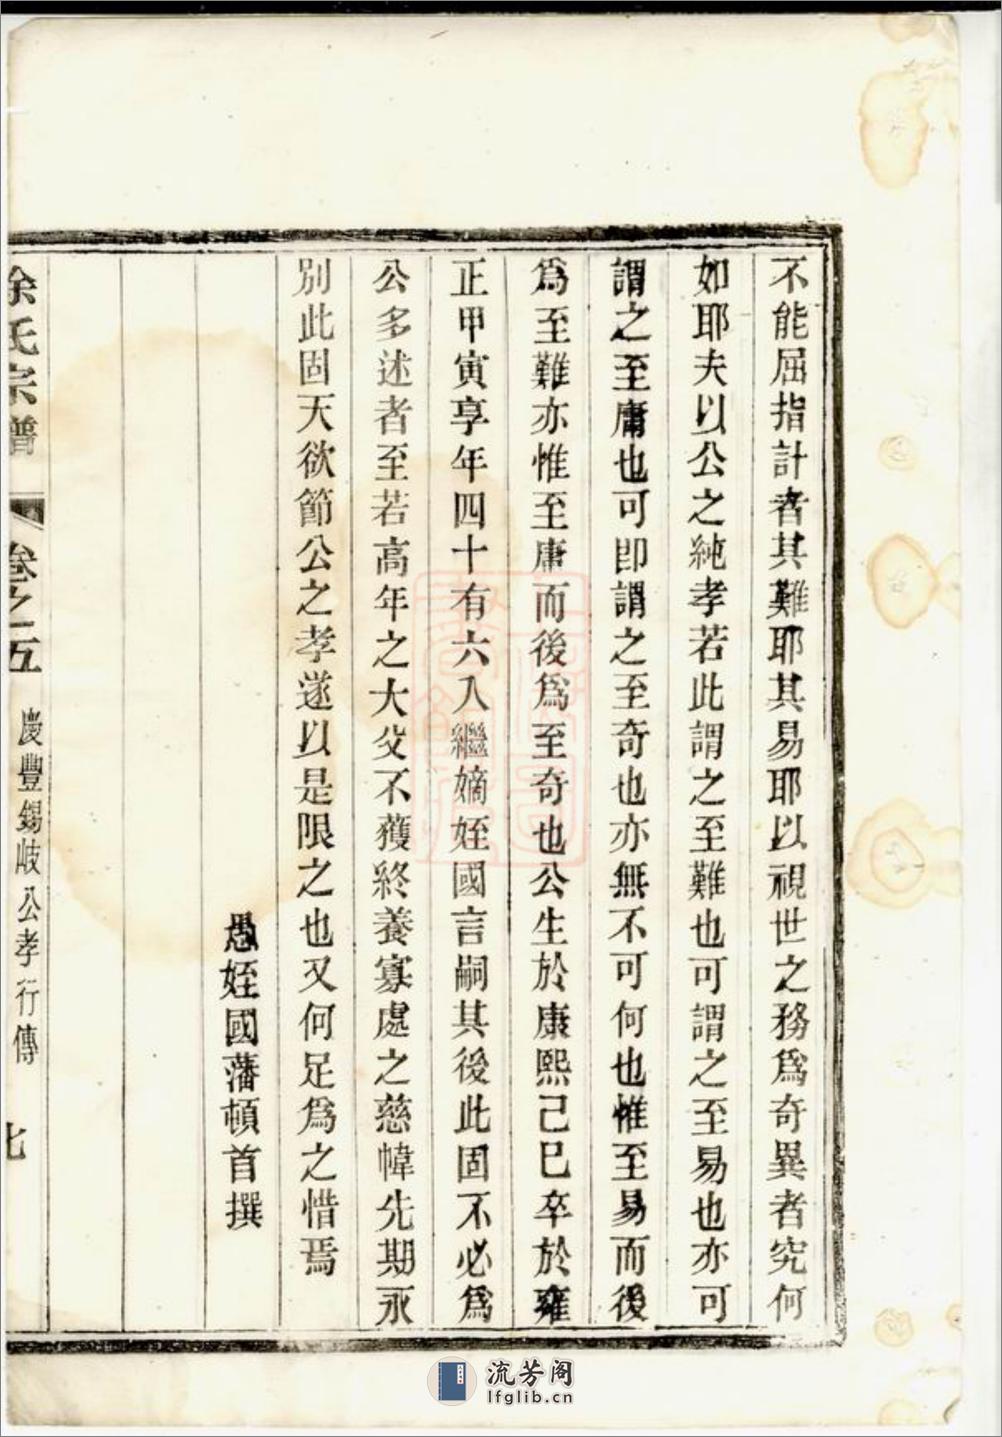 不能屈指計者其難耶其易耶以視世之務爲奇異者究何
如耶夫以公之純孝若此謂之至難也可謂之至易也亦可
謂之至庸也可卽謂之至奇也亦無不可何也惟至易而後
爲至難亦惟至庸而後爲至奇也公生於康熙己巳卒於雍
正甲寅享年四十有六入繼嫡姪國言嗣其後此固不必爲
公多述者至若高年之大父不獲終養寡處之慈幃先期永
別此固天欲節公之孝遂以是限之也又何足爲之惜焉
愚姪國藩頓首撰
徐氏宗譜
卷之五
慶豐錫岐公孝行傳
七
流芳阁
lfglib.cn